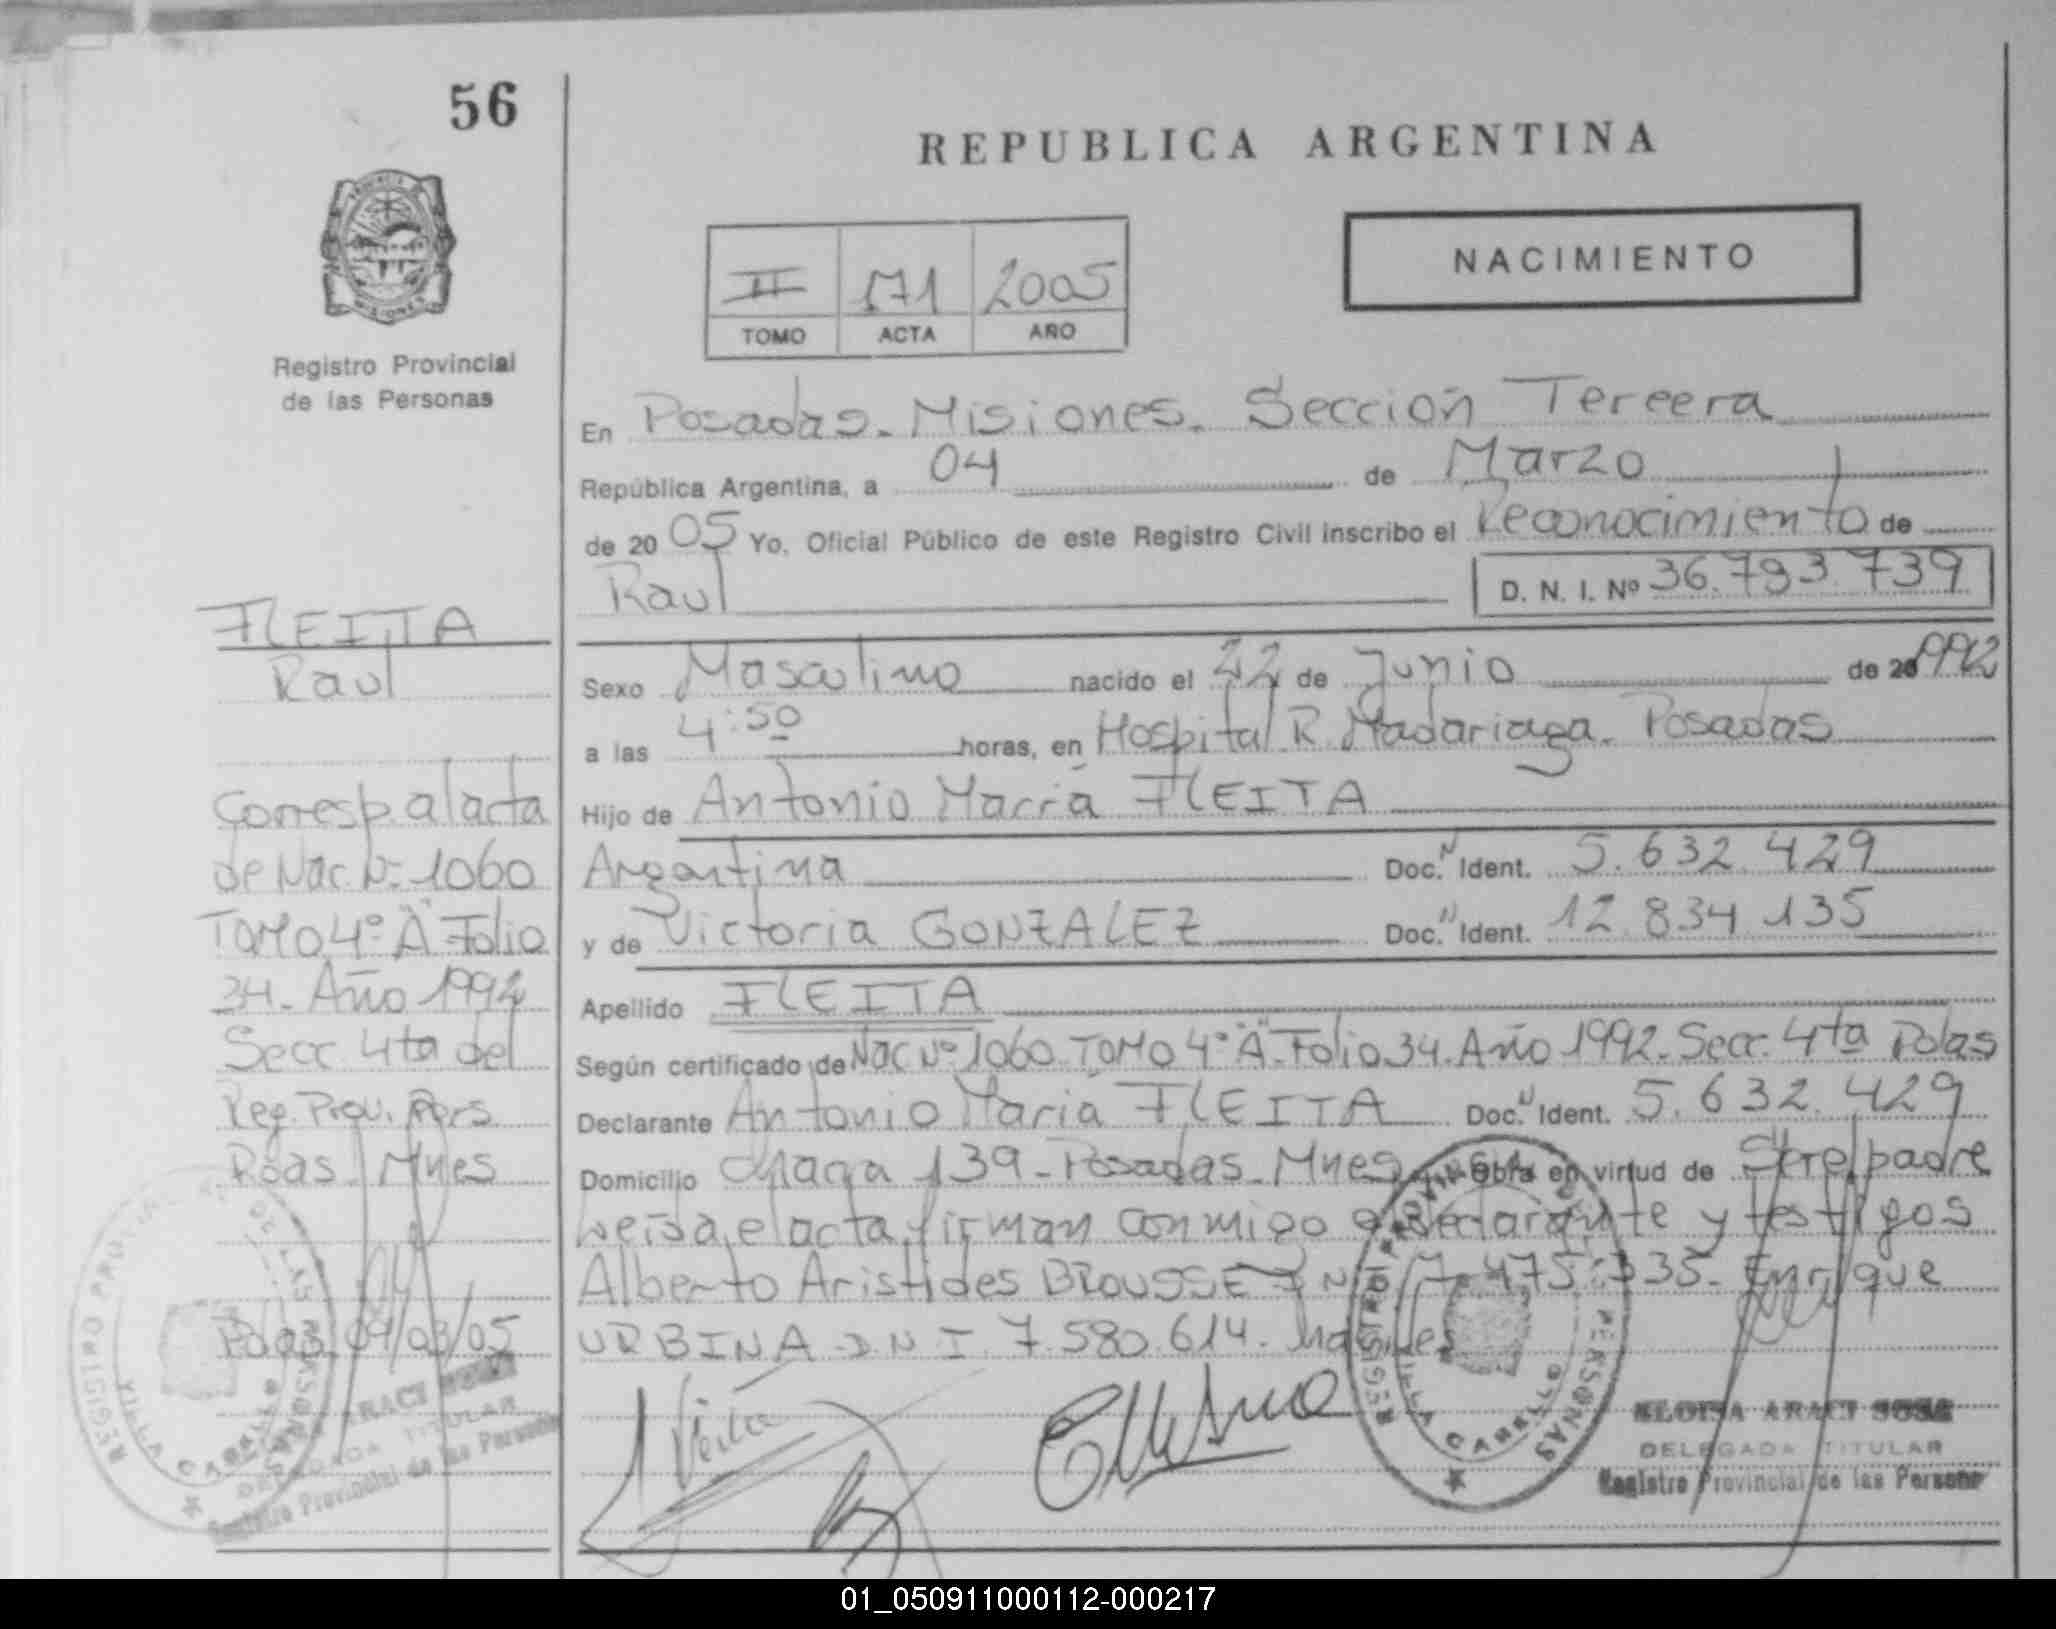 56
REPUBLICA ARGENTINA
NACIMIENTO
II 171 2005
TOMO ACTA AÑO
Registro Provincial
de las Personas
En Posadas. Misiones. Sección Tercera
República Argentina, a 04 de Marzo
de 2005 Yo. Oficial Público de este Registro Civil inscribo el Reconocimiento de
Raul D. N. I. Nº 36.793.739
FLEITA
Raul
Corresp. al acta
de Nac. Nº 1060
TOMO 4º "A" Folio
34. Año 1992
Secc. 4ta del
Reg. Prov. Pers
Pdas. Mnes
Pdas 04/03/05
Sexo Masculino nacido el 22 de Junio de 20 1992
a las 4:50 horas, en Hospital R. Madariaga. Posadas
Hijo de Antonio María FLEITA
Argentina Doc. N Ident. 5.632.429
y de Victoria GONZALEZ Doc. N Ident. 12.834.135
Apellido FLEITA
Según certificado de Nac Nº 1060. TOMO 4º "A". Folio 34. Año 1992. Secc. 4ta Pdas
Declarante Antonio María FLEITA Doc. N Ident. 5.632.429
Domicilio 139 - Posadas. Mnes obra en virtud de Ser el padre
Leída el acta firman conmigo el declarante y testigos
Alberto Aristides BROUSSE 7.475.335. Enrique
URBINA D N I 7.580.614.
ELOISA ARACI SOSA
DELEGADA TITULAR
Registro Provincial de las Persona
REGISTRO PROVINCIAL DE LAS PERSONAS
VILLA CABELLO
ARACI SOSA
DELEGADA TITULAR
Registro Provincial de las Persona
REGISTRO PROVINCIAL DE LAS PERSONAS
VILLA CABELLO
01_050911000112-000217